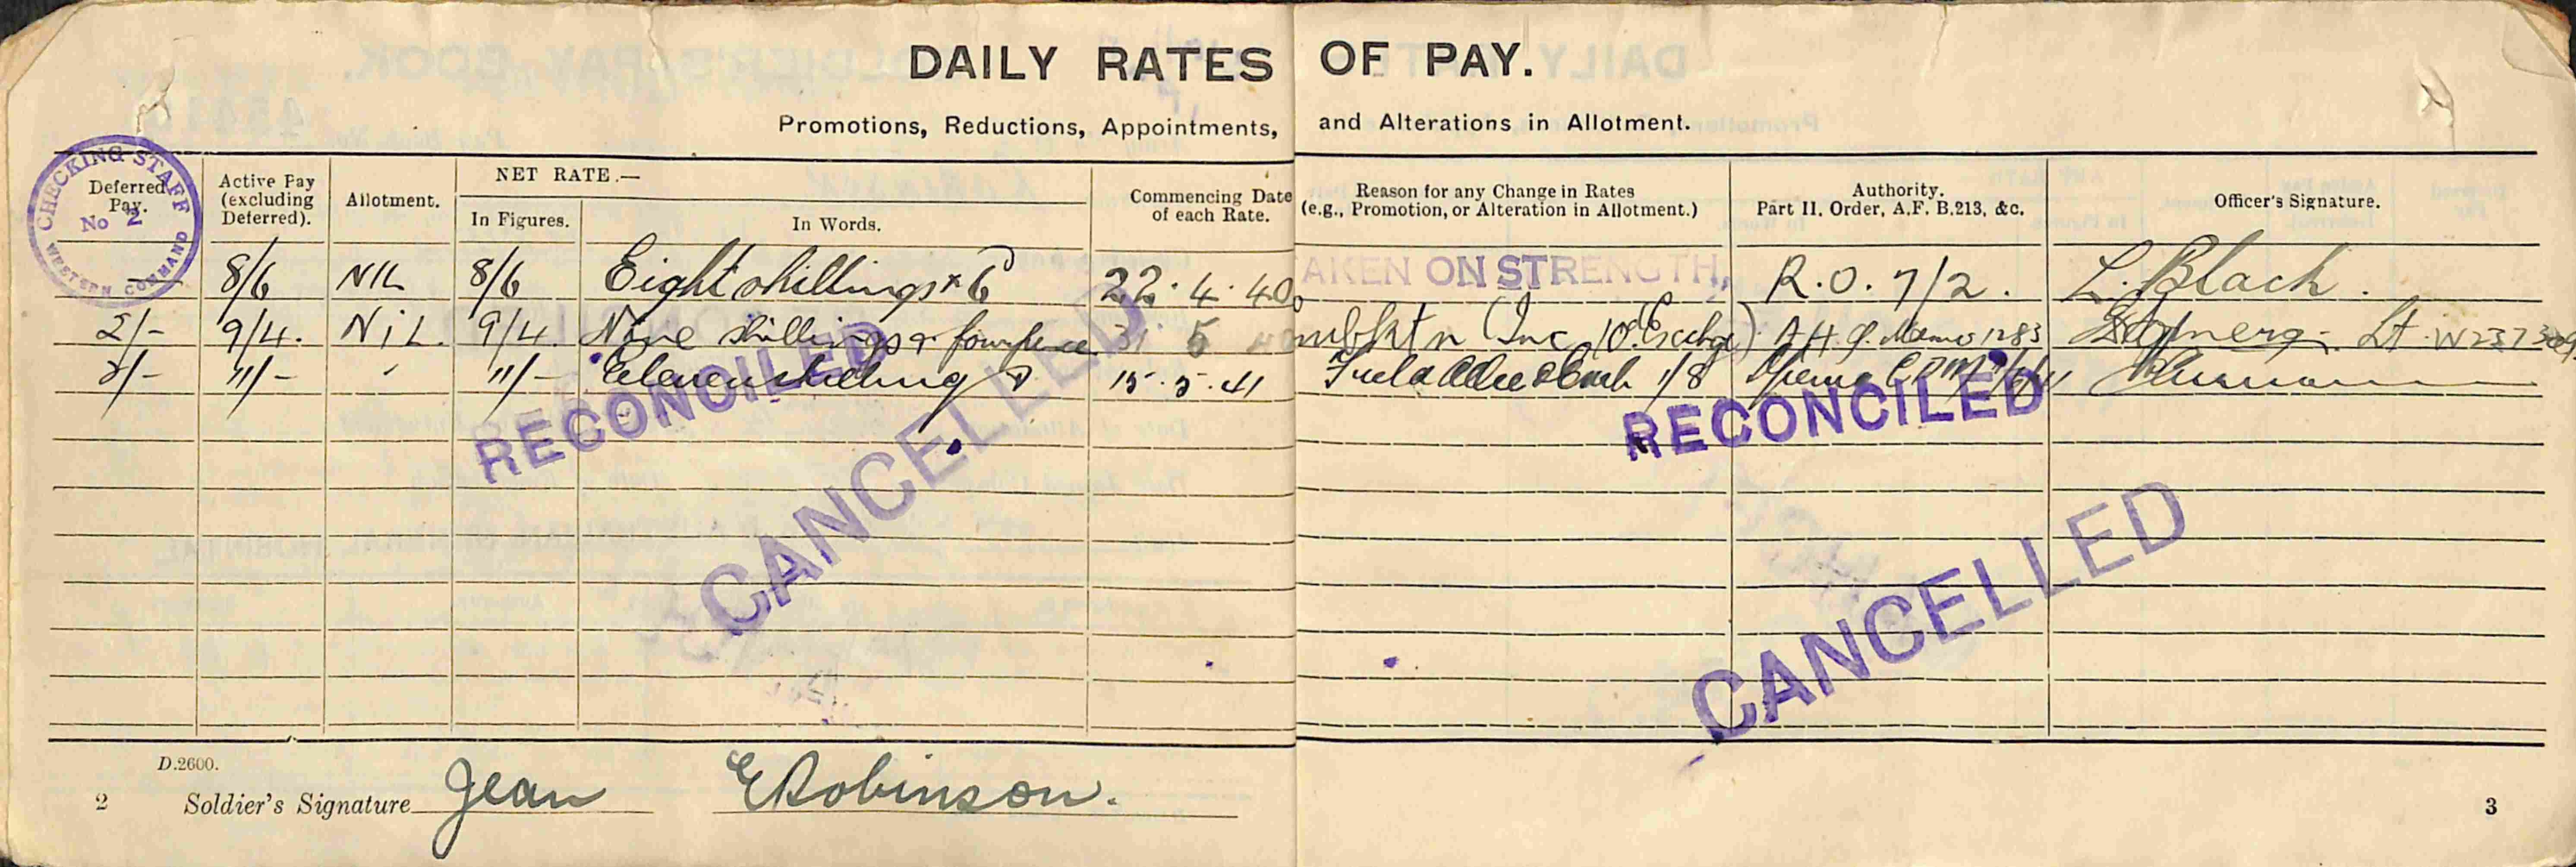 DAILY RATES OF PAY.
Promotions, Reductions, Appointments, and Alterations in Allotment.
CHECKING STAFF
No 2
WESTERN COMMAND
Deferred Pay.
Active Pay (excluding Deferred).
Allotment.
NET RATE.—
In Figures.
In Words.
Commencing Date of each Rate.
Reason for any Change in Rates (e.g., Promotion, or Alteration in Allotment.)
Authority. Part II. Order, A.F. B.213, &c.
Officer's Signature.
— 8/6 NIL 8/6 Eight shillings & 6d 22.4.40 TAKEN ON STRENGTH. R.O. 7/2. L. Black.
2/- 9/4. NiL. 9/4. Nine shillings & fourpence 31 5 40 (Inc. 10% Exchge) A.H.Q. Memo 1283 Lt
2/- 11/- - 11/- Eleven shillings 15.5.41 Field Allce 1/8
RECONCILED
RECONCILED
CANCELLED
CANCELLED
D.2600.
2 Soldier's Signature Jean E Robinson.
3